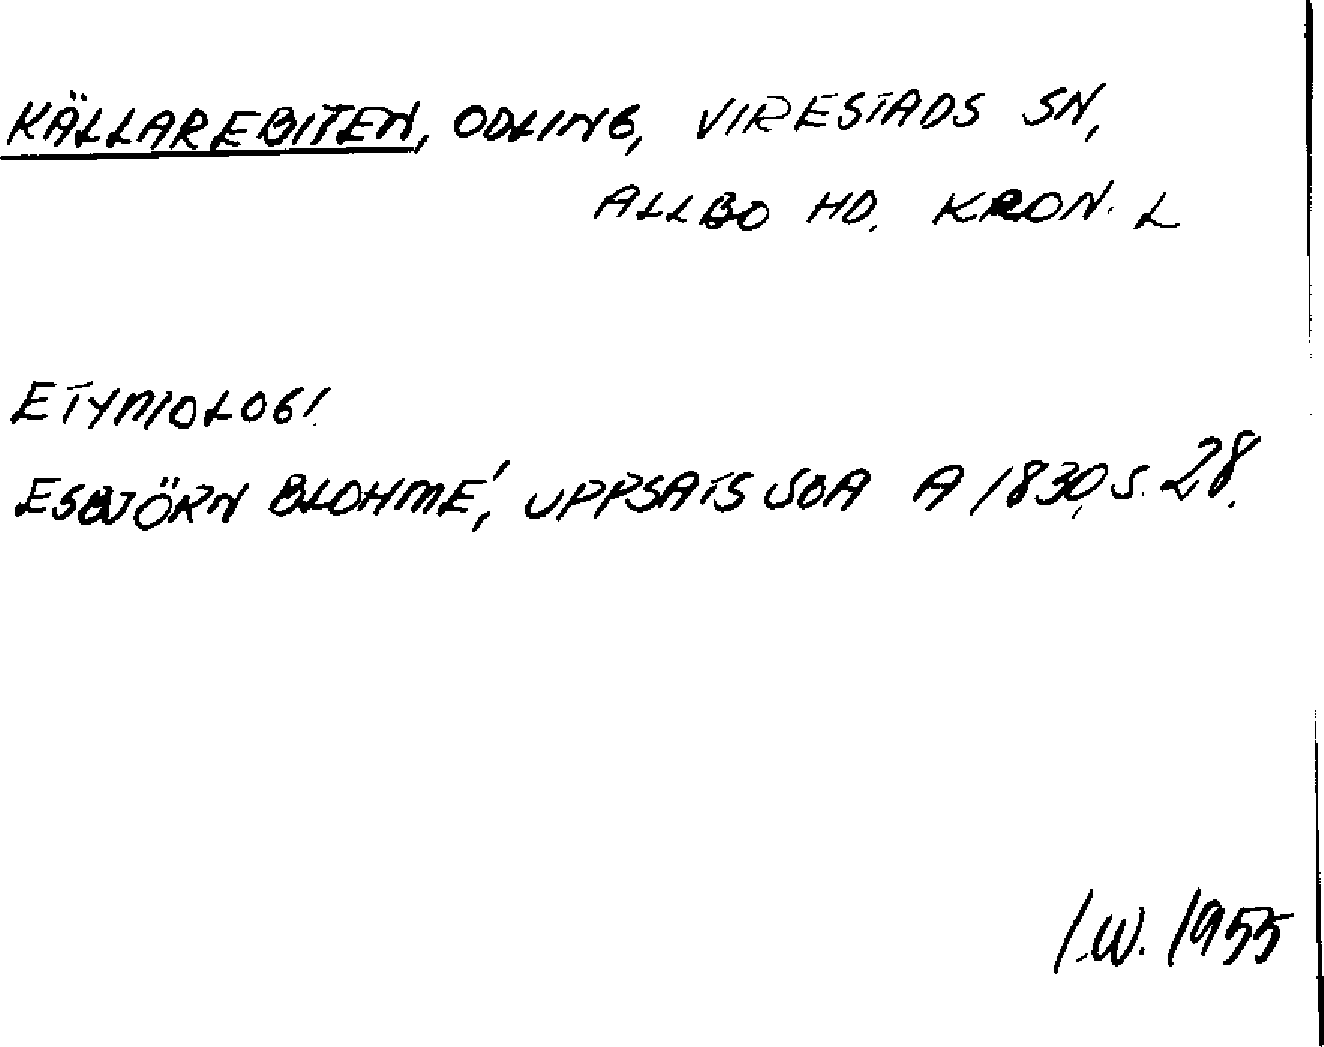 KÄLLAREBITEN, ODLING, VIRESTADS SN,
ALLBO HD. KRON. L
ETYMOLOGI.
ESBJÖRN BLOHMÉ, UPPSATS SOA A 1830, S. 28.
I.W. 1955